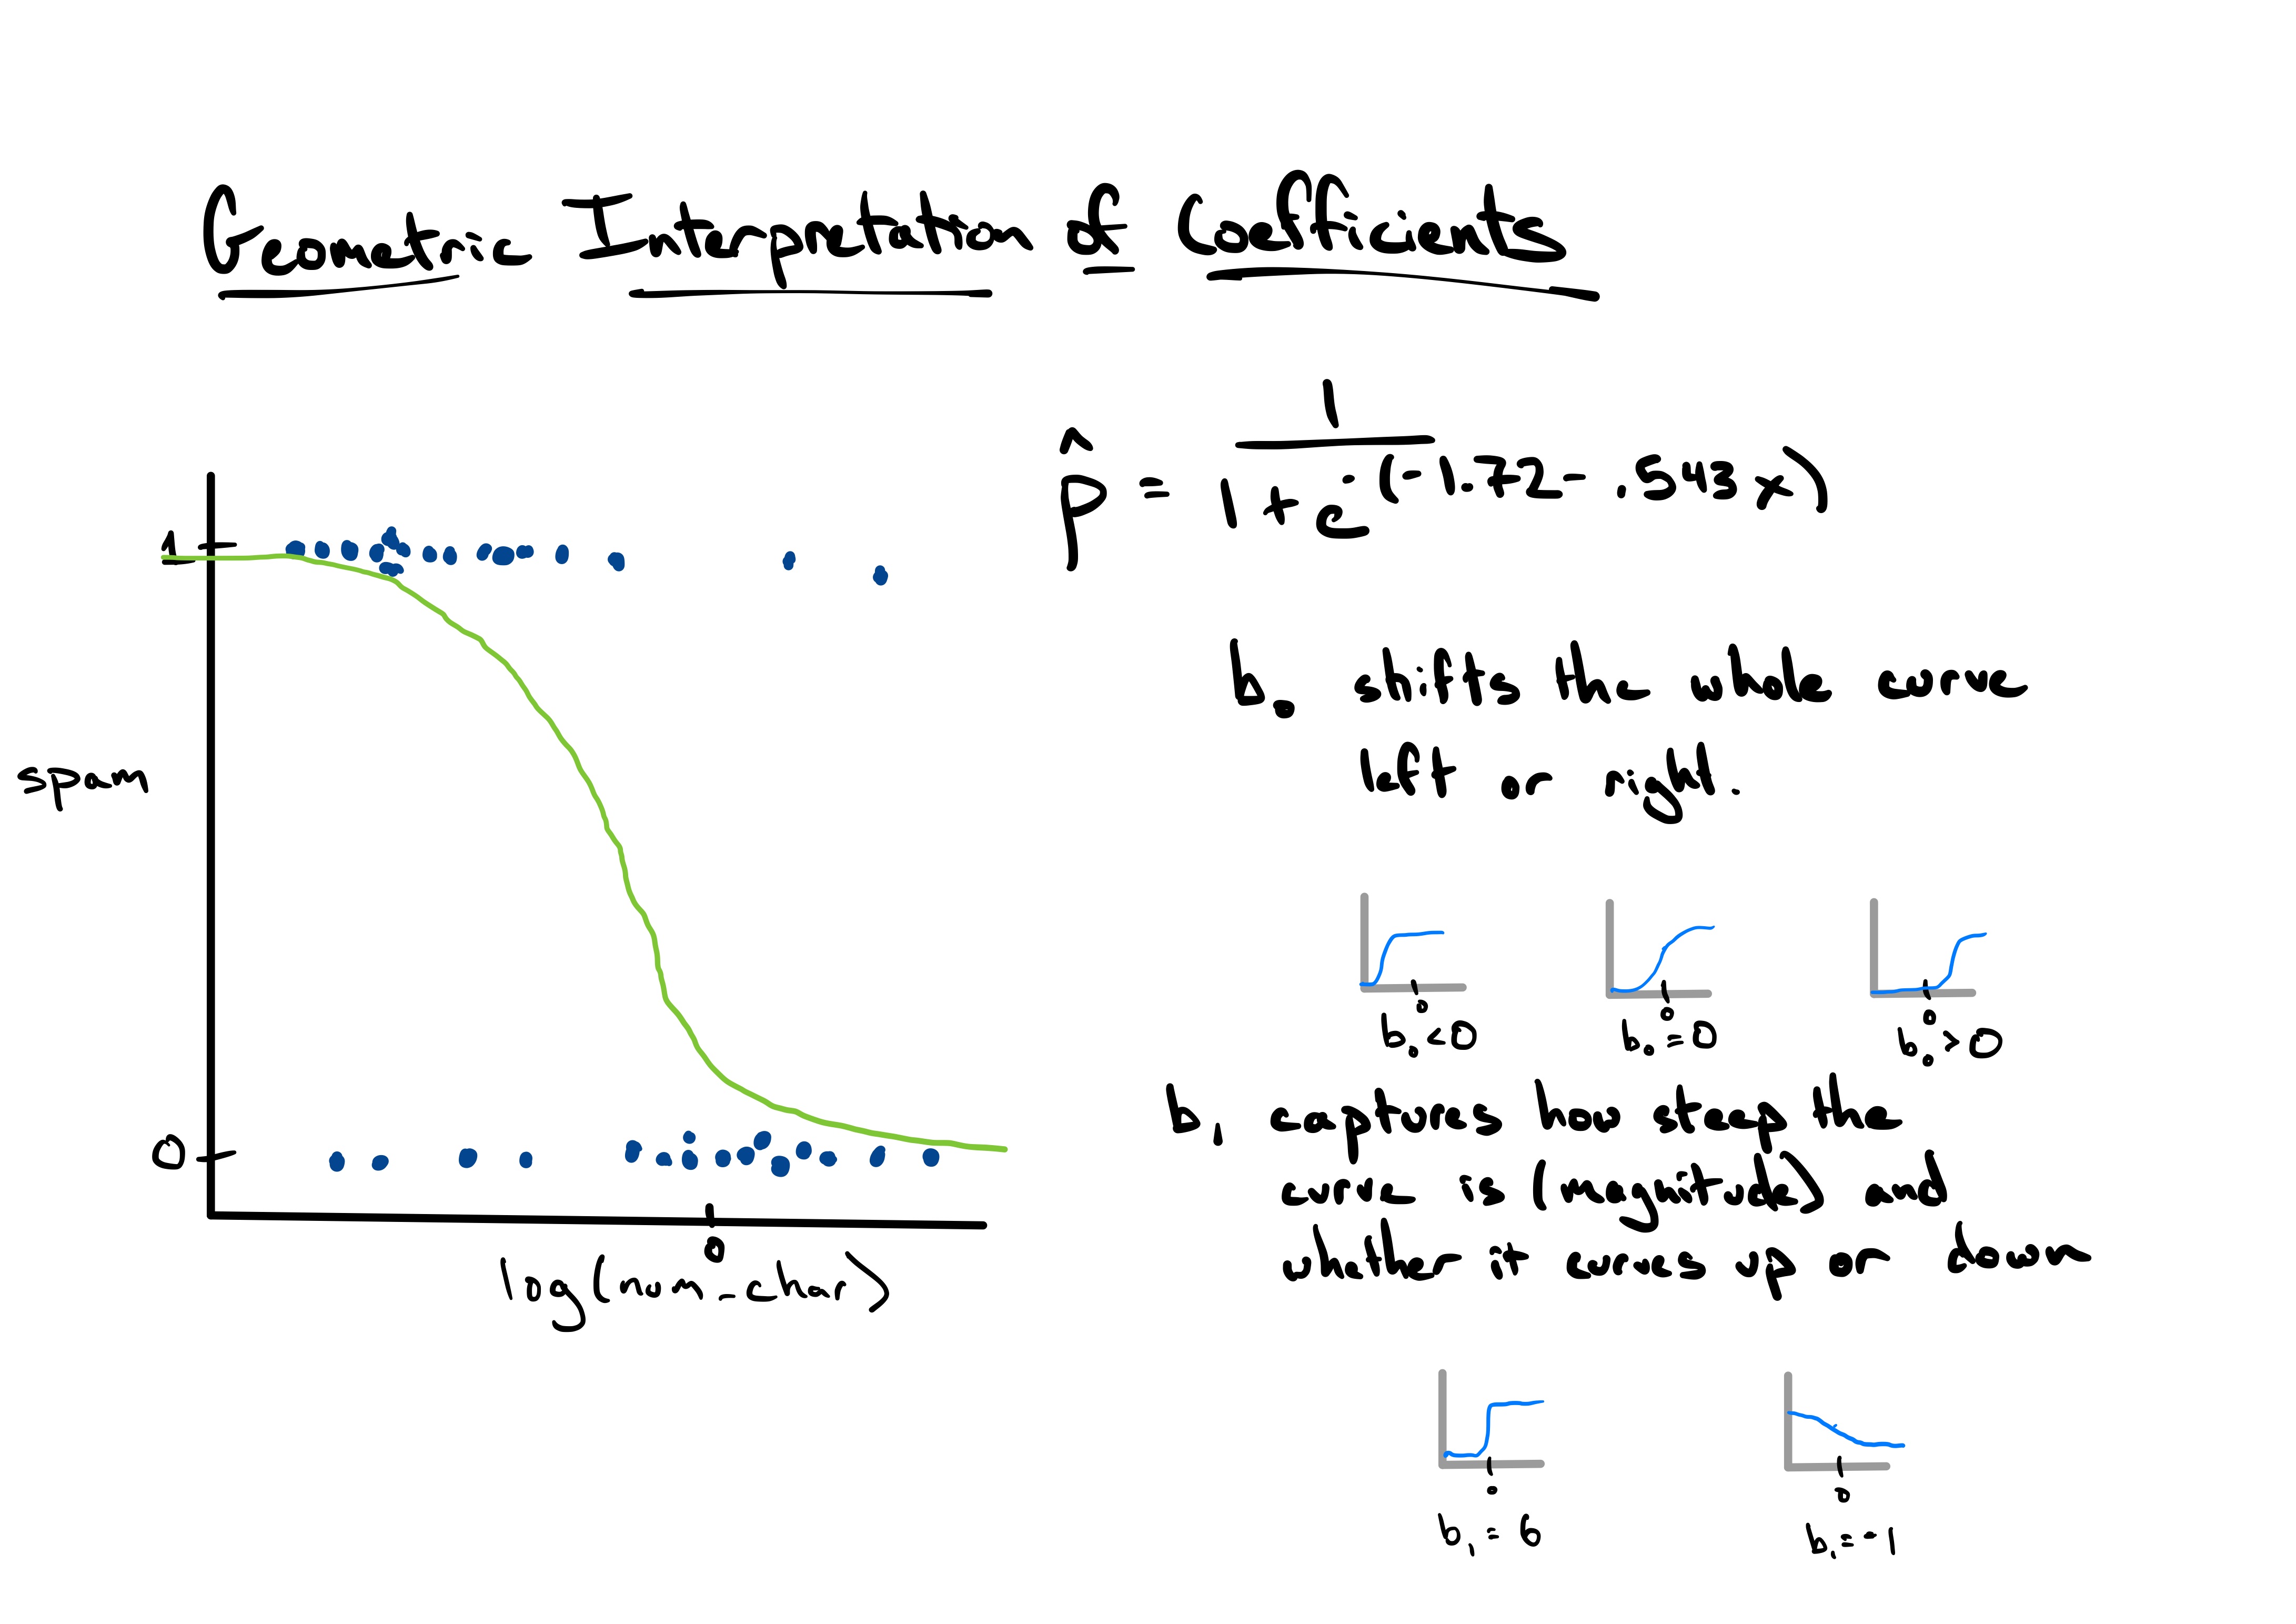 Geometric Interpretation of Coefficients
p̂ = 1 / 1 + e^-(-1.72 - .543x)
1
spam
0
0
log(num_char)
b₀ shifts the whole curve
left or right.
0 0 0
b₀ < 0 b₀ = 0 b₀ > 0
b₁ captures how steep the
curve is (magnitude) and
whether it curves up or down
0 0
b₁ = 6 b₁ = -1